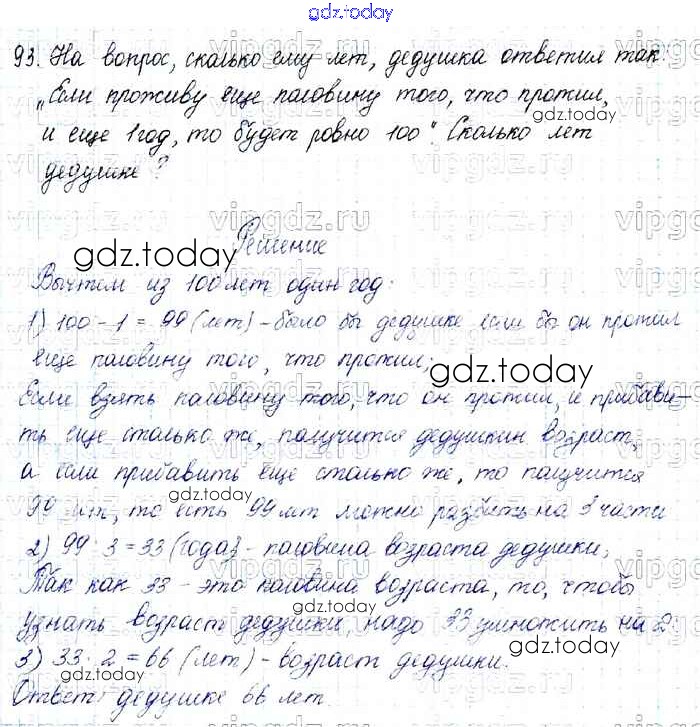 gdz.today
93. На вопрос, сколько ему лет, дедушка ответил так:
"Если проживу еще половину того, что прожил,
gdz.today
и еще 1 год, то будет ровно 100". Сколько лет
дедушке?
vipgdz.ru
Решение
gdz.today
Вычтем из 100 лет один год:
1) 100 - 1 = 99 (лет) - было бы дедушке если бы он прожил
еще половину того, что прожил;
gdz.today
Если взять половину того, что он прожил, и прибави-
ть еще столько же, получится дедушкин возраст,
а если прибавить еще столько же, то получится
gdz.today
99 лет, то есть 99 лет можно разбить на 3 части
2) 99 : 3 = 33 (года) - половина возраста дедушки,
Так как 33 - это половина возраста, то, чтобы
gdz.today
узнать возраст дедушки, надо 33 умножить на 2:
gdz.today
3) 33 · 2 = 66 (лет) - возраст дедушки.
Ответ: дедушке 66 лет.